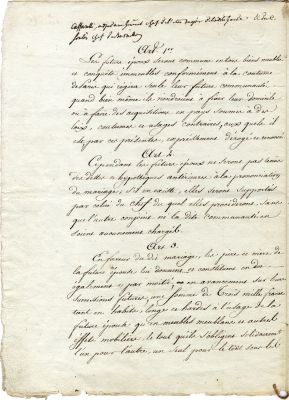 Art 1er
Les futurs époux seront communs en tous biens meubles
et conquets immeubles conformément à la coutume
de Paris qui régira seule leur future communauté
quand bien même ils viendroient à fixer leur domicile
ou à faire des acquisitions en pays soumis à des
loix, coutumes et usages contraires, auxquels il
est par ces présentes, expressément dérogé et renoncé
Art 2.
Cependant les futurs époux ne seront pas tenus
des dettes et hypotèques antérieures à la prononciation
du mariage; s'il en existe, elles seront supportés
par celui du chef duquel elles procéderont, sans
que l'autre conjoint ni la dite communauté en
soient aucunement chargés
Art 3.
En faveur du dit mariage, les père et mère de
la future épouse lui donnent et constituent en dot
également et par moitié, en avancement sur leurs
successions futures, une somme de Trois mille francs
tant en habits, linges et hardes à l'usage de la
future épouse qu'en meubles meublans et autres
effets mobiliers, le tout qu'ils s'obligent solidairement
l'un pour l'autre, un seul pour le tout sous les